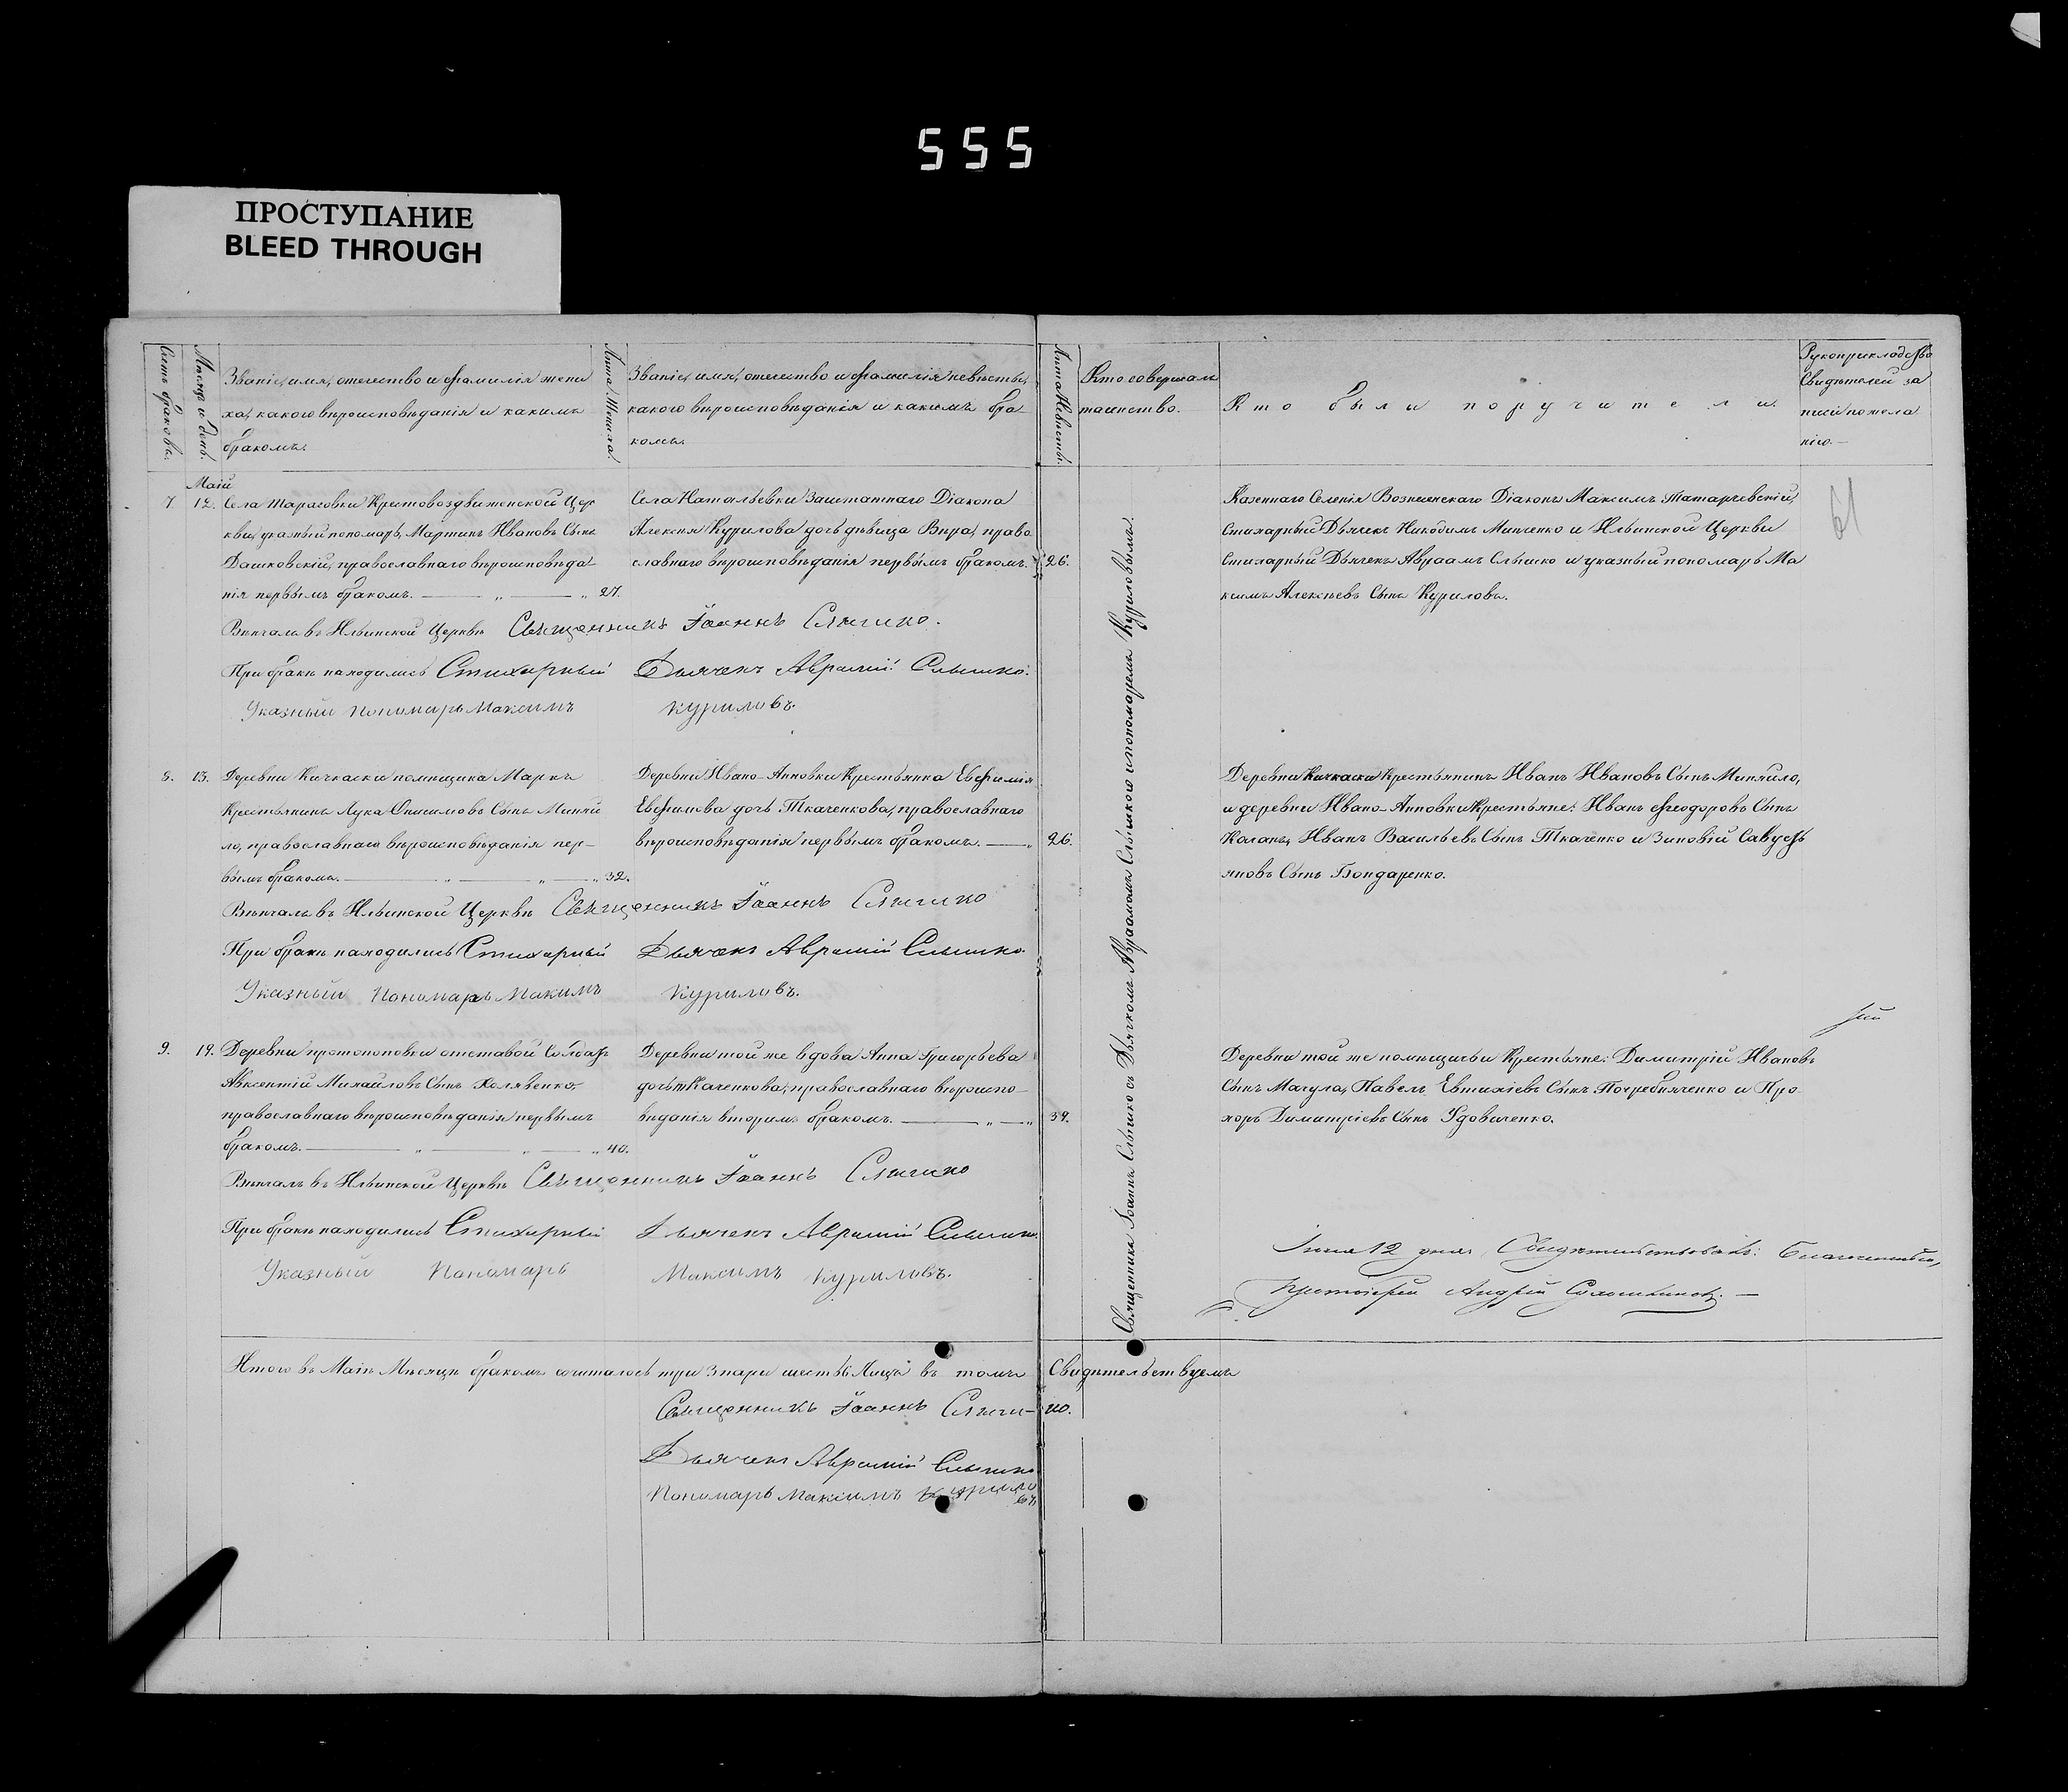 555
ПРОСТУПАНИЕ
BLEED THROUGH
Счетъ браковъ.
Мѣсяцъ и день.
Званіе, имя, отечество и фамилія жени
ха, какого вѣроисповѣданія и какимъ
бракомъ.
Лѣта Жениха.
Званіе, имя, отечество и фамилія невѣсты,
какого вѣроисповѣданія и какимъ бра
комъ.
Лѣта Невѣсты.
Кто совершалъ
таинство.
Кто были поручители.
Рукоприкладство
Свидѣтелей за
писи по жела
нію.—
Маій
7. 12. Села Тарасовки Крестовоздвиженской Цер
кви, указный пономарь, Мартинъ Ивановъ Сынъ
Дашковскій, православнаго вѣроисповѣда-
нія первымъ бракомъ. 27.
Села Натальевки Заштатнаго Діакона
Алексія Курилова дочь дѣвица Вѣра, право
славнаго вѣроисповѣданія первымъ бракомъ. 26.
Казеннаго Селенія Вознесенскаго Діаконъ Максимъ Татарчевскій,
Стихарный Дьячекъ Никодимъ Миненко и Ильинской Церкви
Стихарный Дьячекъ Авраамъ Слышко и указный пономарь Ма
ксимъ Алексѣевъ Сынъ Куриловъ.
61
Вѣнчалъ въ Ильинской Церкви Священникъ Іоаннъ Слышко.
При бракѣ находились Стихарный Дьячекъ Аврамій Слышко.
Указный Пономарь Максимъ Куриловъ.
Священника Іоанна Слышко съ Дьячкомъ Авраамомъ Слышкою и пономаремъ Куриловымъ.
8. 13. Деревни Кичкаски помѣщика Маркъ
Крестьянинъ Лука Онисимовъ Сынъ Миняй
ло, православнаго вѣроисповѣданія пер-
вымъ бракомъ. 32.
Деревни Ивано-Анновки Крестьянка Евфимія
Евфимова дочь Ткаченкова, православнаго
вѣроисповѣданія первымъ бракомъ. 26.
Деревни Кичкаски Крестьянинъ Иванъ Ивановъ Сынъ Миняйло,
и деревни Ивано-Анновки Крестьяне: Иванъ Феодоровъ Сынъ
Иванъ Васильевъ Сынъ Ткаченко и Зиновій Савусть
яновъ Сынъ Бондаренко.
Вѣнчалъ въ Ильинской Церкви Священникъ Іоаннъ Слышко
При бракѣ находились Стихарный Дьячекъ Аврамій Слышко.
Указный Пономарь Макимъ Куриловъ.
9. 19. Деревни протопоповки отставой Солдатъ
Авксентій Михайловъ Сынъ Холявенко,
православнаго вѣроисповѣданія первымъ
бракомъ. 40.
Деревни той же вдова Анна Григорьева
дочь Ткаченкова, православнаго вѣроиспо-
вѣданія вторымъ бракомъ. 39.
Деревни той же помѣщичьи Крестьяне: Димитрій Ивановъ
Сынъ Магула, Павелъ Евтихіевъ Сынъ Погребняченко и Про
хоръ Димитріевъ Сынъ Удовиченко.
Вѣнчалъ въ Ильинской Церкви Священникъ Іоаннъ Слышко
При бракѣ находились Стихарный Дьячекъ Аврамій Слышко
Указный Пономарь Максимъ Куриловъ.
12 дня Свидѣтельствовалъ: Благочинный,
Протоіерей Андрей
Итого въ Маіѣ Мѣсяцѣ бракомъ сочиталось три 3 пары шесть 6 Лицъ въ томъ Свидѣтельствуемъ
Священникъ Іоаннъ Слыш-ко.
Дьячекъ Аврамій Слышко
Пономарь Максимъ Курило
въ